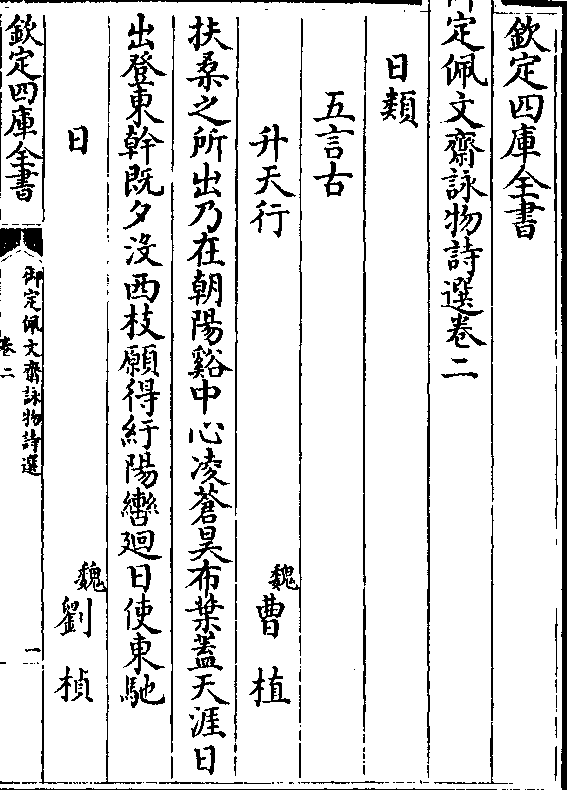 欽定四庫全書
定佩文齋詠物詩選卷二
日類
五言古
升天行 魏曹植
扶桑之所出乃在朝陽谿中心凌蒼昊布葉蓋天涯日
出登東幹既夕沒西枝願得紆陽轡廻日使東馳
日 魏劉楨
欽定四庫全書 御定佩文齋詠物詩選 卷二 一